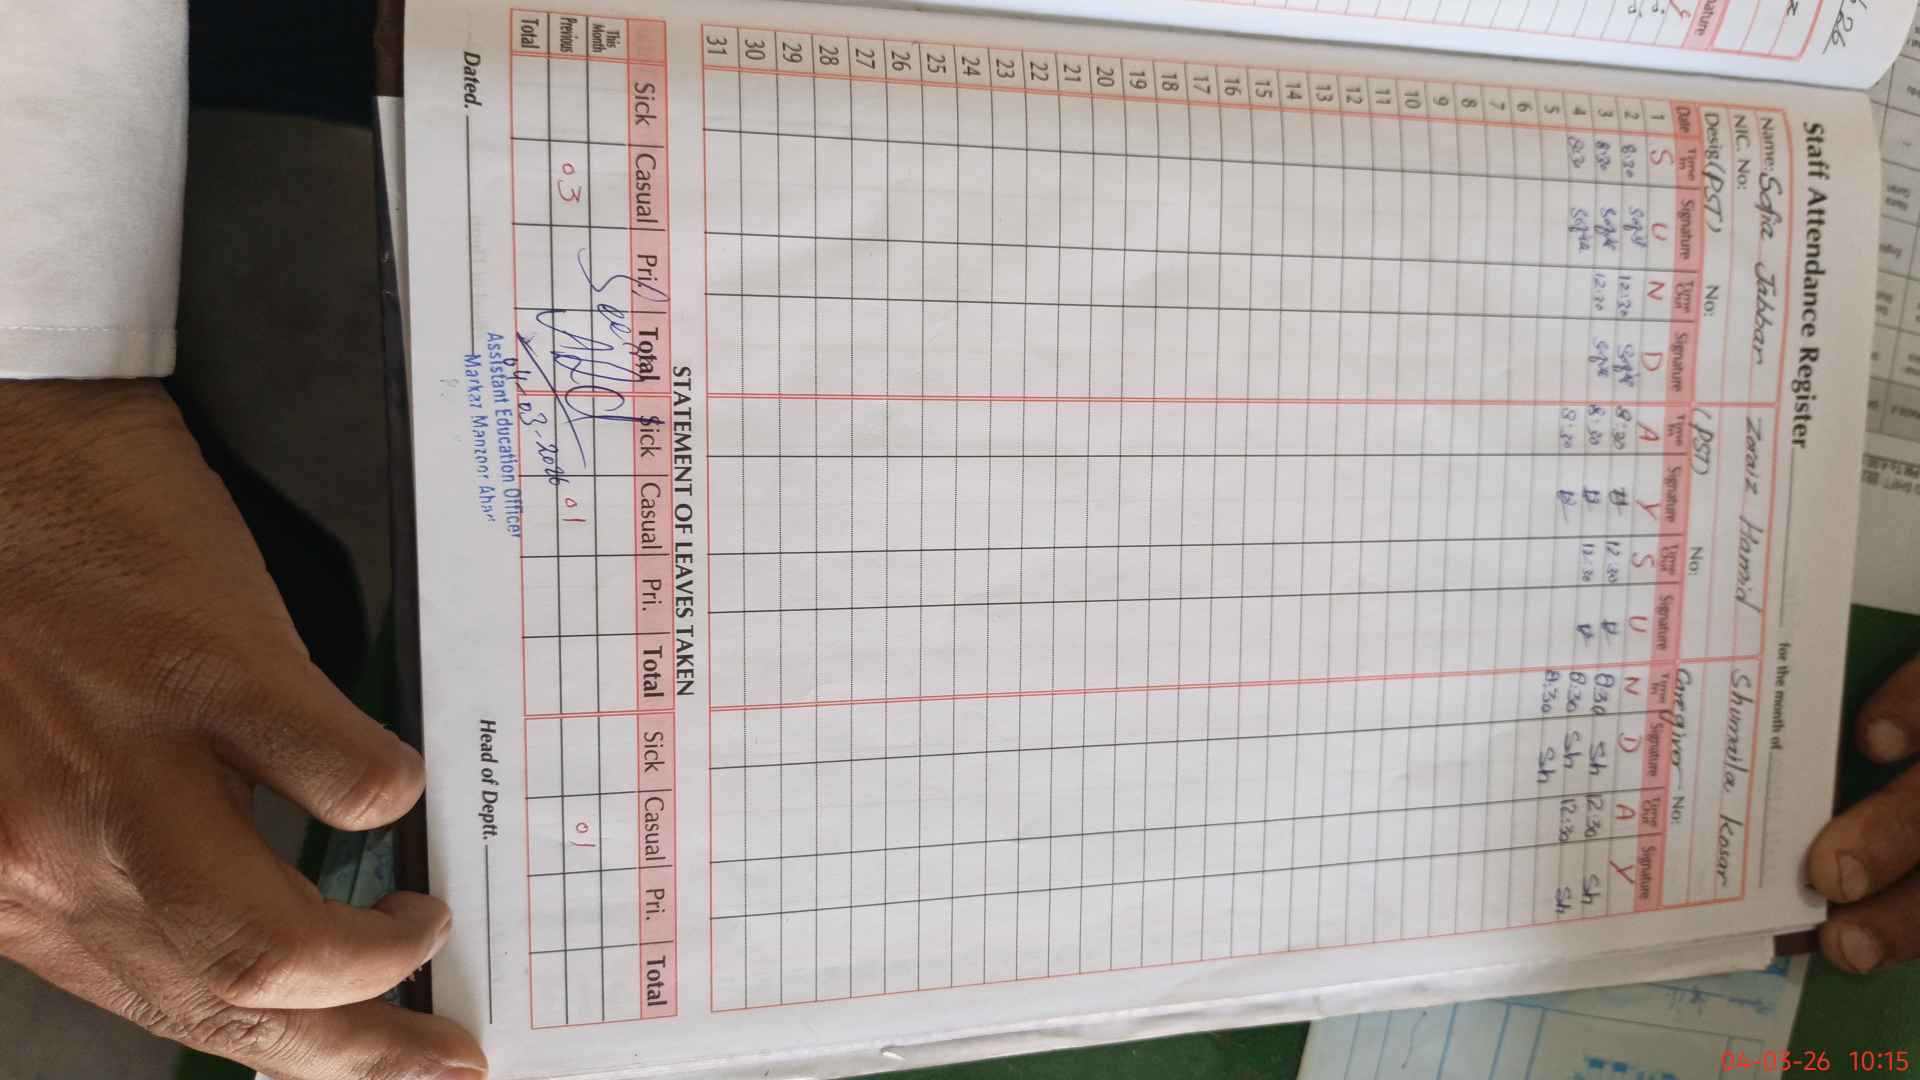 Staff Attendance Register for the month of
Name: Sofia Jabbar Zoraiz Hamid Shumaila kosar
NIC. No:
Desig (PST) No: (PST) No: Caregiver No:
Date Time In Signature Time Out Signature Time In Signature Time Out Signature Time In Signature Time Out Signature
1 S U N D A Y S U N D A Y
2 8:30 12:30 8:30 12:30 8:30 Sh 12:30 Sh
3 8:30 12:30 8:30 12:30 8:30 Sh 12:30 Sh
4 8:30 8:30 8:30 Sh
5
6
7
8
9
10
11
12
13
14
15
16
17
18
19
20
21
22
23
24
25
26
27
28
29
30
31
STATEMENT OF LEAVES TAKEN
Sick Casual Pri. Total Sick Casual Pri. Total Sick Casual Pri. Total
This Month
Previous 03 01 01
Total
Seen
04-03-2026
Assistant Education Officer
Markaz Manzoor Abad
Dated. Head of Deptt.
26
04-03-26 10:15